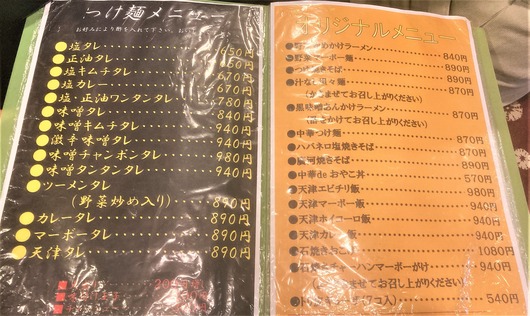 つけ麺メニュー
お好みにより酢を入れて下さい。
●塩タレ 650円
●正油タレ 650円
●塩キムチタレ 670円
●塩カレー 670円
●塩・正油ワンタンタレ 780円
●味噌タレ 840円
●味噌キムチタレ 940円
●激辛味噌タレ 940円
●味噌チャンポンタレ 980円
●味噌タンタンタレ 940円
●ツーメンタレ
(野菜炒め入り) 890円
●カレータレ 890円
●マーボータレ 890円
●天津タレ 890円
オリジナルメニュー
かけラーメン 840円
●野菜マーボー麺 890円
焼きそば 890円
●汁なし坦々麺 870円
(かきまぜてお召し上がりください)
●黒味噌あんかけラーメン 870円
(酢をかけてお召し上がりください)
●中華つけ麺 870円
●ハバネロ塩焼きそば 870円
河焼きそば 890円
●中華deおやこ丼 570円
●天津エビチリ飯 980円
●天津マーボー飯 940円
●天津ホイコーロ飯 940円
●天津カレー飯 940円
●石焼きおこげ 1080円
●石焼チャーハンマーボーがけ 940円
(かきまぜてお召し上がりください)
540円